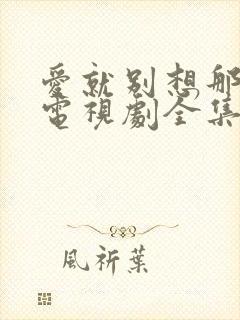 愛就別想那
電視劇全集
風祈葉